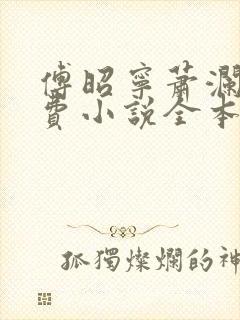 傅昭寧蕭瀾
費小說全本
孤獨燦爛的神